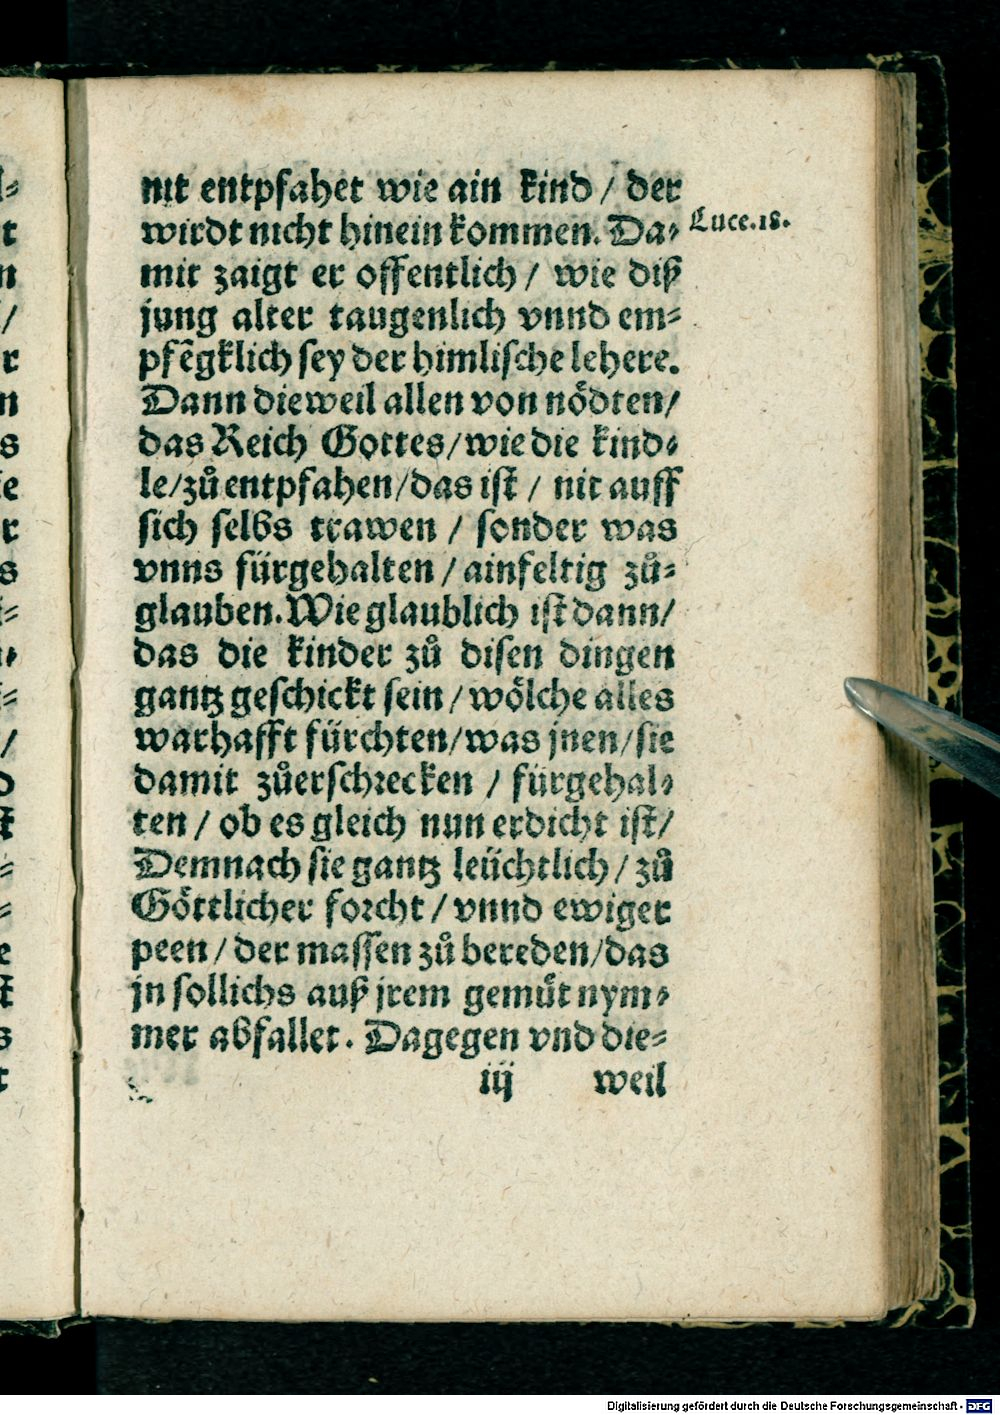 nit entpfahet wie ain kind / der
wirdt nicht hinein kommen. Da⸗
Luce.18.
mit zaigt er offentlich / wie diß
jung alter taugenlich vnnd em⸗
pfẽgklich sey der himlische lehere.
Dann dieweil allen von nödten/
das Reich Gottes/wie die kind⸗
le/zů entpfahen/das ist / nit auff
sich selbs trawen / sonder was
vnns fürgehalten / ainfeltig zů⸗
glauben. Wie glaublich ist dann/
das die kinder zů disen dingen
gantz geschickt sein / wölche alles
warhafft fürchten/was jnen/sie
damit zůerschrecken / fürgehal⸗
ten / ob es gleich nun erdicht ist/
Demnach sie gantz leüchtlich / zů
Göttlicher forcht / vnnd ewiger
peen / der massen zů bereden/das
jn sollichs auß jrem gemüt nym⸗
mer abfallet. Dagegen vnd die⸗
iij weil
Digitalisierung gefördert durch die Deutsche Forschungsgemeinschaft - DFG